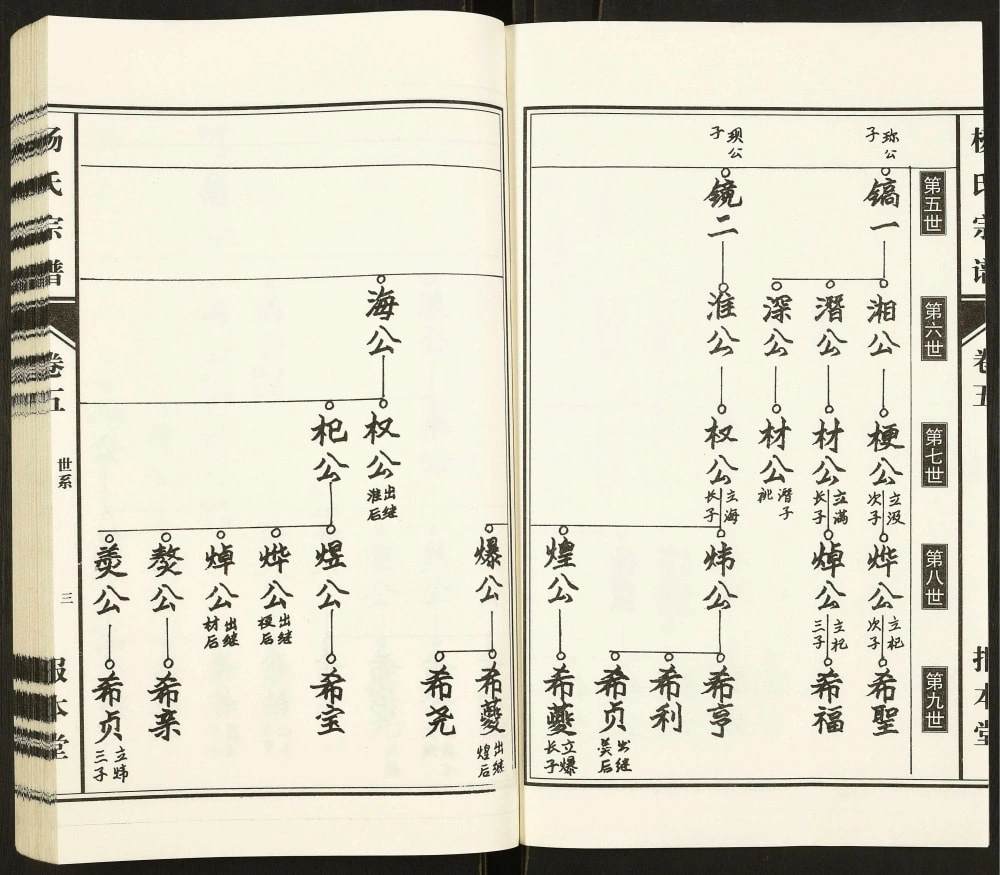 杨氏宗谱
卷五
报本堂
第五世
第六世
第七世
第八世
第九世
珎公子
镐一
湘公
梗公
立汲次子
烨公
立杞次子
希聖
潛公
材公
立满长子
焯公
立杞三子
希福
深公
材公
潛子祧
现公子
镜二
淮公
权公
立海长子
炜公
希亨
希利
希贞
出继羙后
煌公
希夔
立爆长子
爆公
希夔
出继煌后
希尧
海公
权公
出继淮后
杞公
煜公
希宝
烨公
出继梗后
焯公
出继材后
熬公
希亲
羙公
希贞
立炜三子
杨氏宗谱
卷五
世系
三
报本堂